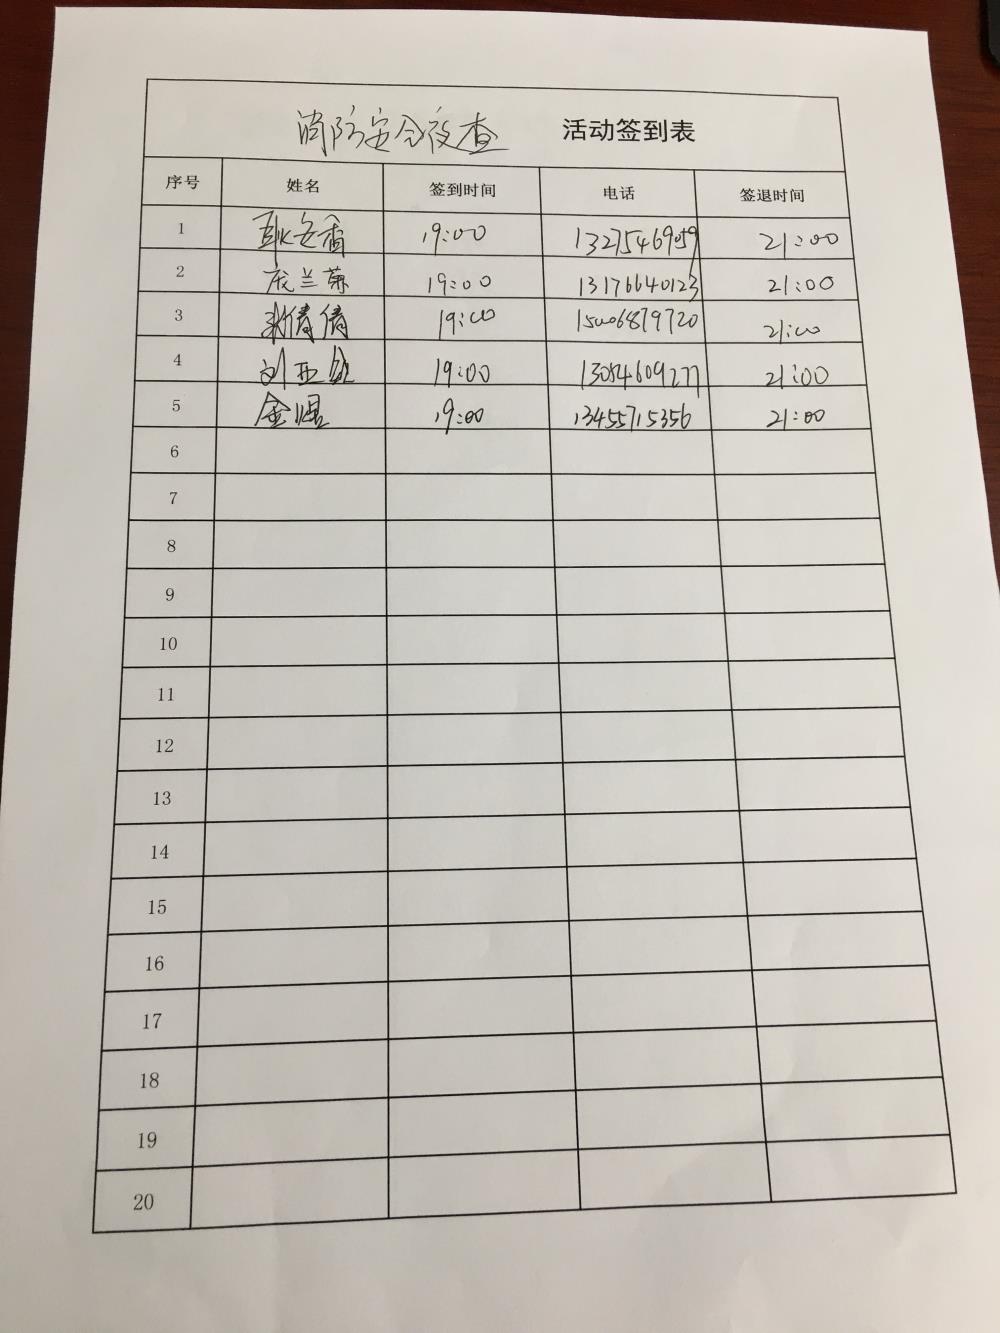 消防安全夜查 活动签到表
序号 姓名 签到时间 电话 签退时间
1 19:00 13275469059 21:00
2 庞兰菊 19:00 13176640123 21:00
3 倩倩 19:00 15006879720 21:00
4 刘亚 19:00 13054609277 21:00
5 金温 19:00 13455715356 21:00
6
7
8
9
10
11
12
13
14
15
16
17
18
19
20